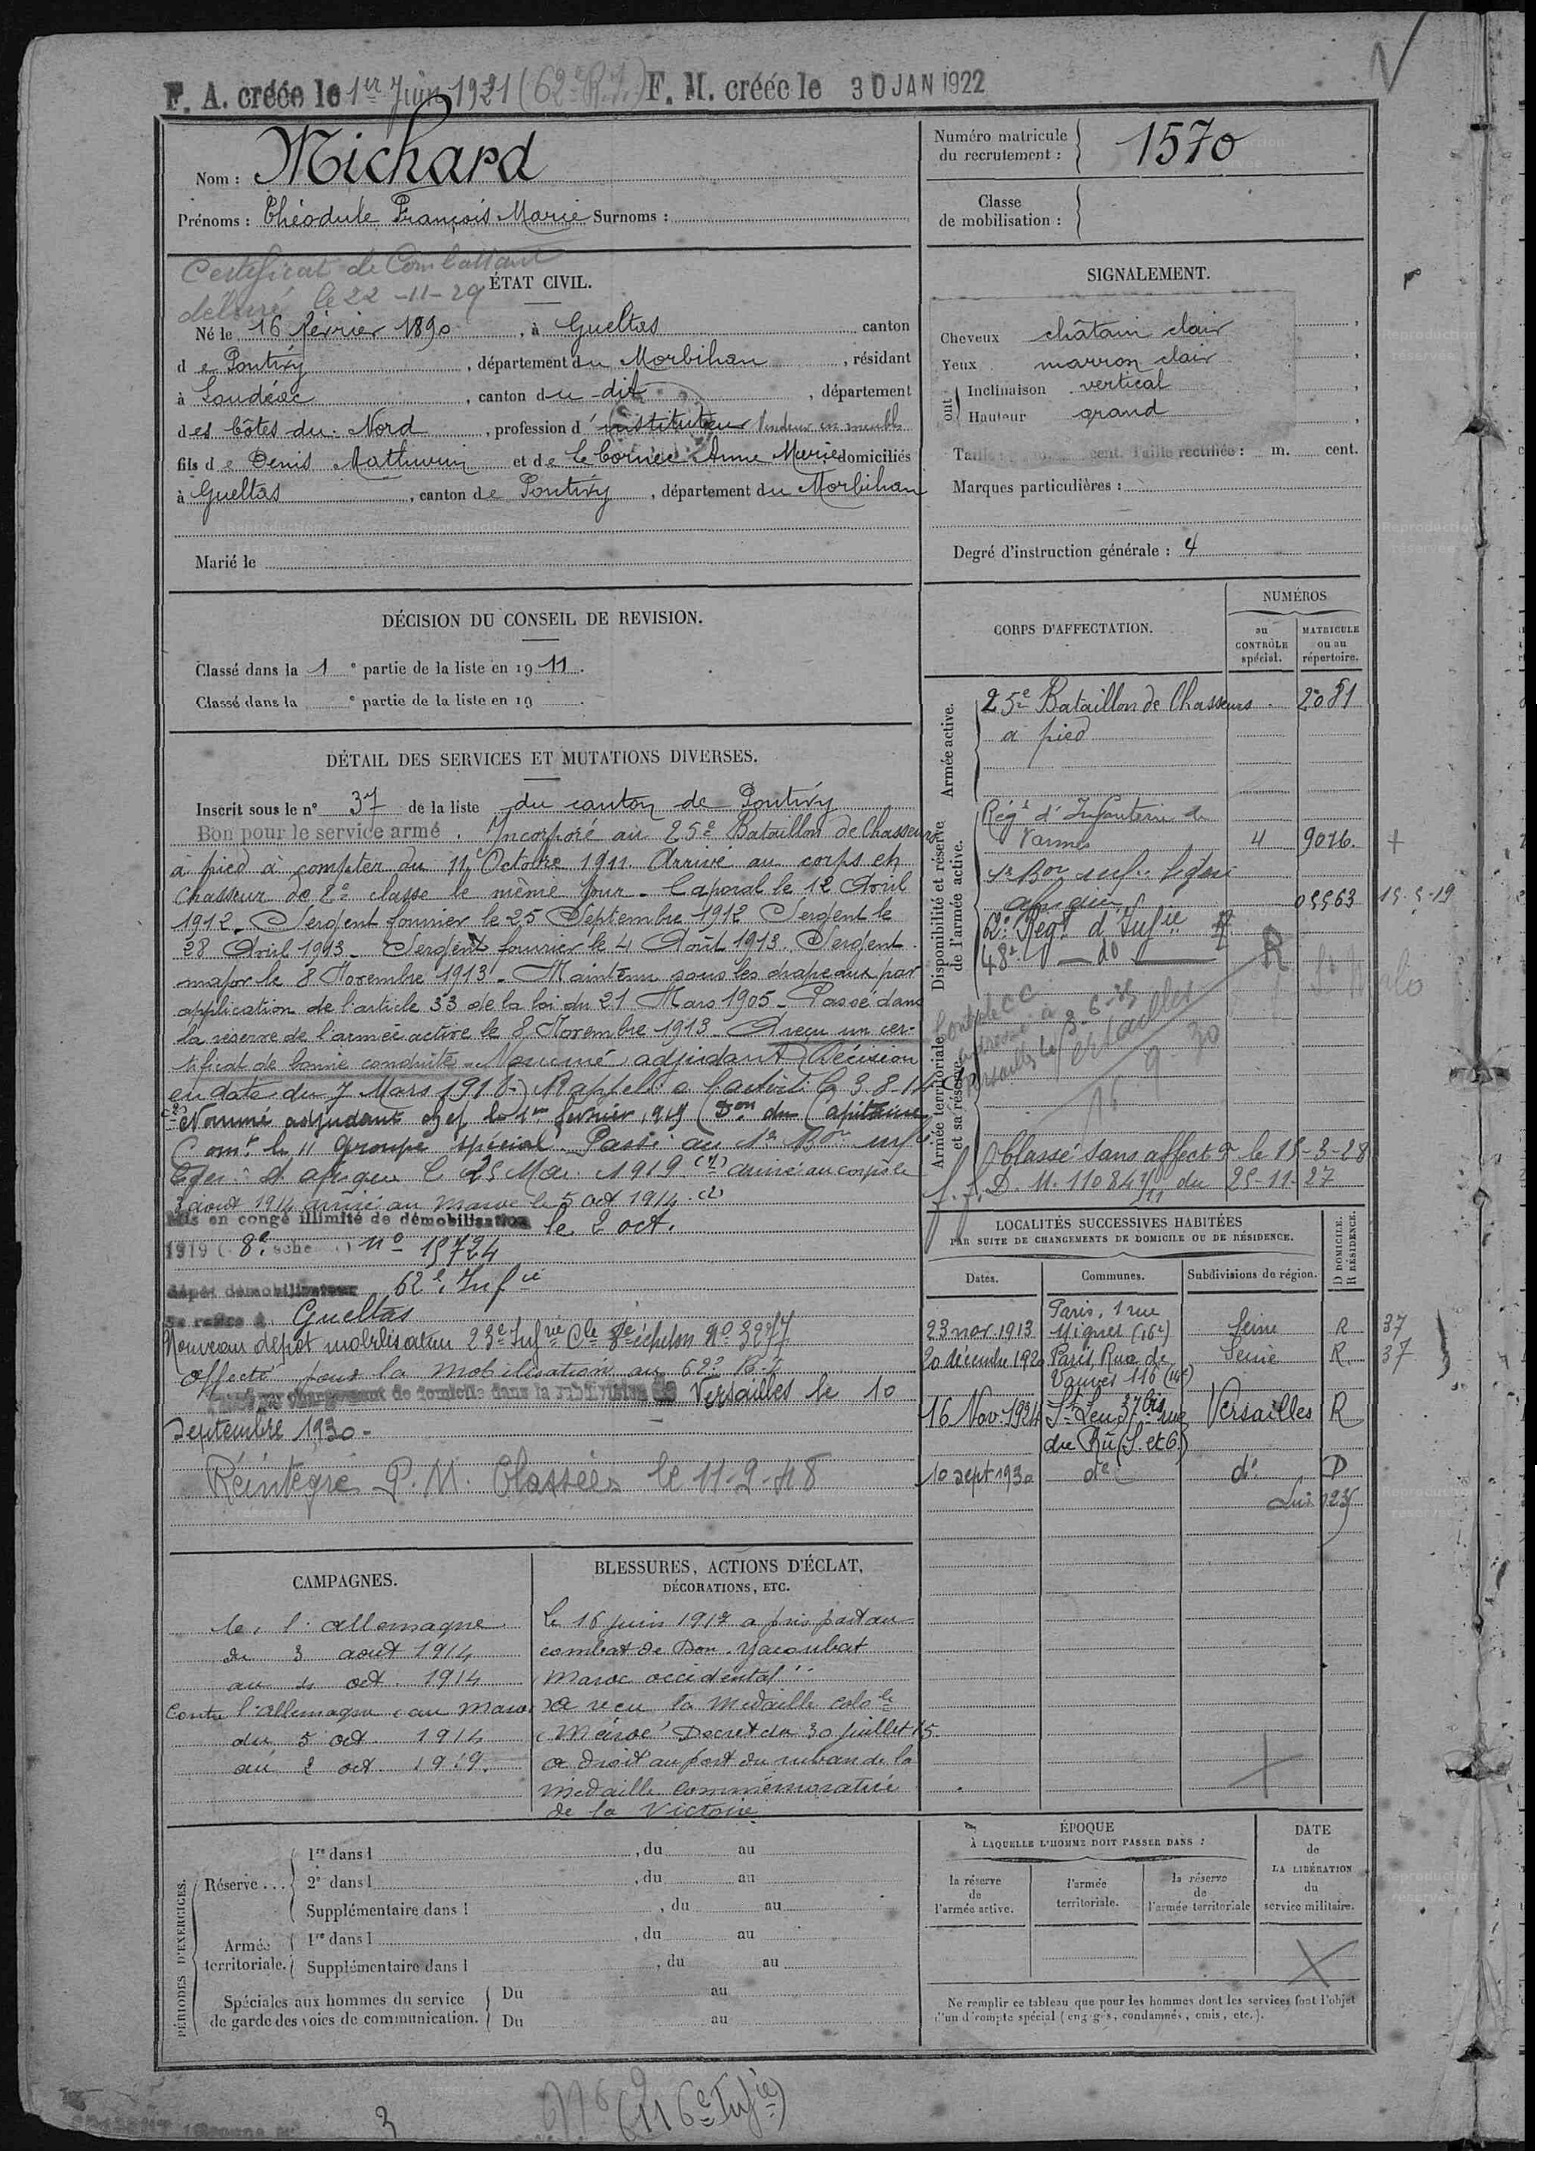 F. A. créée le 1er Juin 1921 (62e R.I.) F. M. créée le 30 JAN 1922
Nom : Michard
Prénoms : Théodule François Marie Surnoms :
Numéro matricule
du recrutement : 1570
Classe
de mobilisation :
Certificat de Combattant
délivré le 22-11-29
ÉTAT CIVIL.
Né le 16 février 1890, à Gueltas canton
de Pontivy, département du Morbihan, résidant
à Loudéac, canton du dit, département
des Côtes du Nord, profession d'instituteur Vendeur en meubles
fils de Denis Mathurin et de Le Cornec Anne Marie domiciliés
à Gueltas, canton de Pontivy, département du Morbihan
Marié le
SIGNALEMENT.
Cheveux châtain clair
Yeux marron clair
ont
Inclinaison vertical
Hauteur grand
Taille : cent. Taille rectifiée : m. cent.
Marques particulières :
Degré d'instruction générale : 4
DÉCISION DU CONSEIL DE REVISION.
Classé dans la 1e partie de la liste en 1911.
Classé dans la e partie de la liste en 19 .
DÉTAIL DES SERVICES ET MUTATIONS DIVERSES.
Inscrit sous le n° 37 de la liste du canton de Pontivy
Bon pour le service armé. Incorporé au 25e Bataillon de Chasseurs
à pied à compter du 11 Octobre 1911. Arrivé au corps et
Chasseur de 2e classe le même jour. Caporal le 12 Avril
1912. Sergent fourrier le 25 Septembre 1912 Sergent le
28 Avril 1913. Sergent fourrier le 4 Août 1913. Sergent
major le 8 Novembre 1913. Maintenu sous les drapeaux par
application de l'article 33 de la loi du 21 Mars 1905. Passé dans
la réserve de l'armée active le 8 Novembre 1913. A reçu un cer-
tificat de bonne conduite. Nommé adjudant (Décision
en date du 7 Mars 1918.) Rappelé à l'activité le 3-8-14
Nommé adjudant chef le 1er février 1919 (Don du Capitaine
Comt le 11 groupe spécial Passé au 1r Bon Infie
Légère d'afrique le 25 Mai 1919 (1) arrivé au corps le
3 aout 1914 arrivé au Maroc le 5 oct 1914. (2)
Mis en congé illimité de démobilisation le 2 oct.
1919 (8e éche ) n° 15724
dépôt démobilisateur 62e Infie
Se retire à Gueltas
Nouveau dépôt mobilisateur 23e Infrie Cle 8e échelon N° 3277
Affecté pour la mobilisation au 62e R.I
changement de domicile dans la subdivision de Versailles le 10
Septembre 1930.
Réintégré P.M. Classées le 11-2-48
CORPS D'AFFECTATION.
NUMÉROS
au CONTRÔLE spécial.
MATRICULE ou au répertoire.
Armée active.
25e Bataillon de Chasseurs 2081
à pied
Disponibilité et réserve de l'armée active.
Régt d'Infanterie de
Vannes 4 9016.
1r Bon infie légère
africain 05563 15-5-19
62e Regt d'Infie
48e do R St Malo
Armée territoriale et sa réserve.
Versailles
16 9 30
Classé sans affecton le 15-3-28
D. M. 11084 du 25-11-27
LOCALITÉS SUCCESSIVES HABITÉES
PAR SUITE DE CHANGEMENTS DE DOMICILE OU DE RÉSIDENCE.
Dates. Communes. Subdivisions de région. D DOMICILE. R RÉSIDENCE.
23 nov. 1913 Paris, 1 rue Mignet (16e) Seine R 37
20 décembre 1920 Paris Rue de Vanves 116 (14e) Seine R. 37
16 Nov 1924 St Leu 37 bis rue du Rû (S. et O.) Versailles R
10 sept 1930 do do D
CAMPAGNES.
l'allemagne
du 3 aout 1914
au 4 oct. 1914
Contre l'allemagne au Maroc
du 5 oct. 1914
au 2 oct. 1919.
BLESSURES, ACTIONS D'ÉCLAT,
DÉCORATIONS, ETC.
Le 16 juin 1917 a pris part au
combat de Dou Yacoubat
Maroc occidental
A reçu la Médaille colole
"Maroc" Decret du 30 juillet 15
a droit au port du ruban de la
médaille Commémorative
de la Victoire
PÉRIODES D'EXERCICES.
Réserve...
1re dans l , du au
2e dans l , du au
Supplémentaire dans l , du au
Armée territoriale.
1re dans l , du au
Supplémentaire dans l , du au
Spéciales aux hommes du service
de garde des voies de communication.
Du au
Du au
ÉPOQUE
À LAQUELLE L'HOMME DOIT PASSER DANS :
la réserve de l'armée active.
l'armée territoriale.
la réserve de l'armée territoriale
DATE de LA LIBÉRATION du service militaire.
Ne remplir ce tableau que pour les hommes dont les services font l'objet
d'un décompte spécial (engagés, condamnés, omis, etc.).
3
(116e Infie)